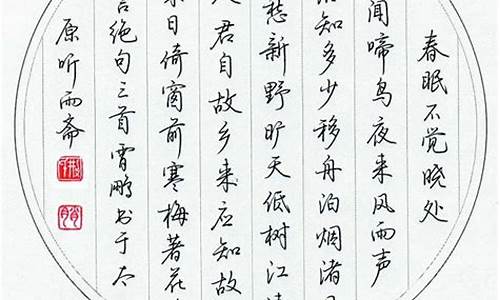 春眠不觉晓处
闻啼鸟夜来风雨声
知多少移舟泊烟渚
愁新野旷天低树江
君自故乡来应知故
来日倚窗前寒梅著花
言绝句三首霄鹏书于太
原听雨斋